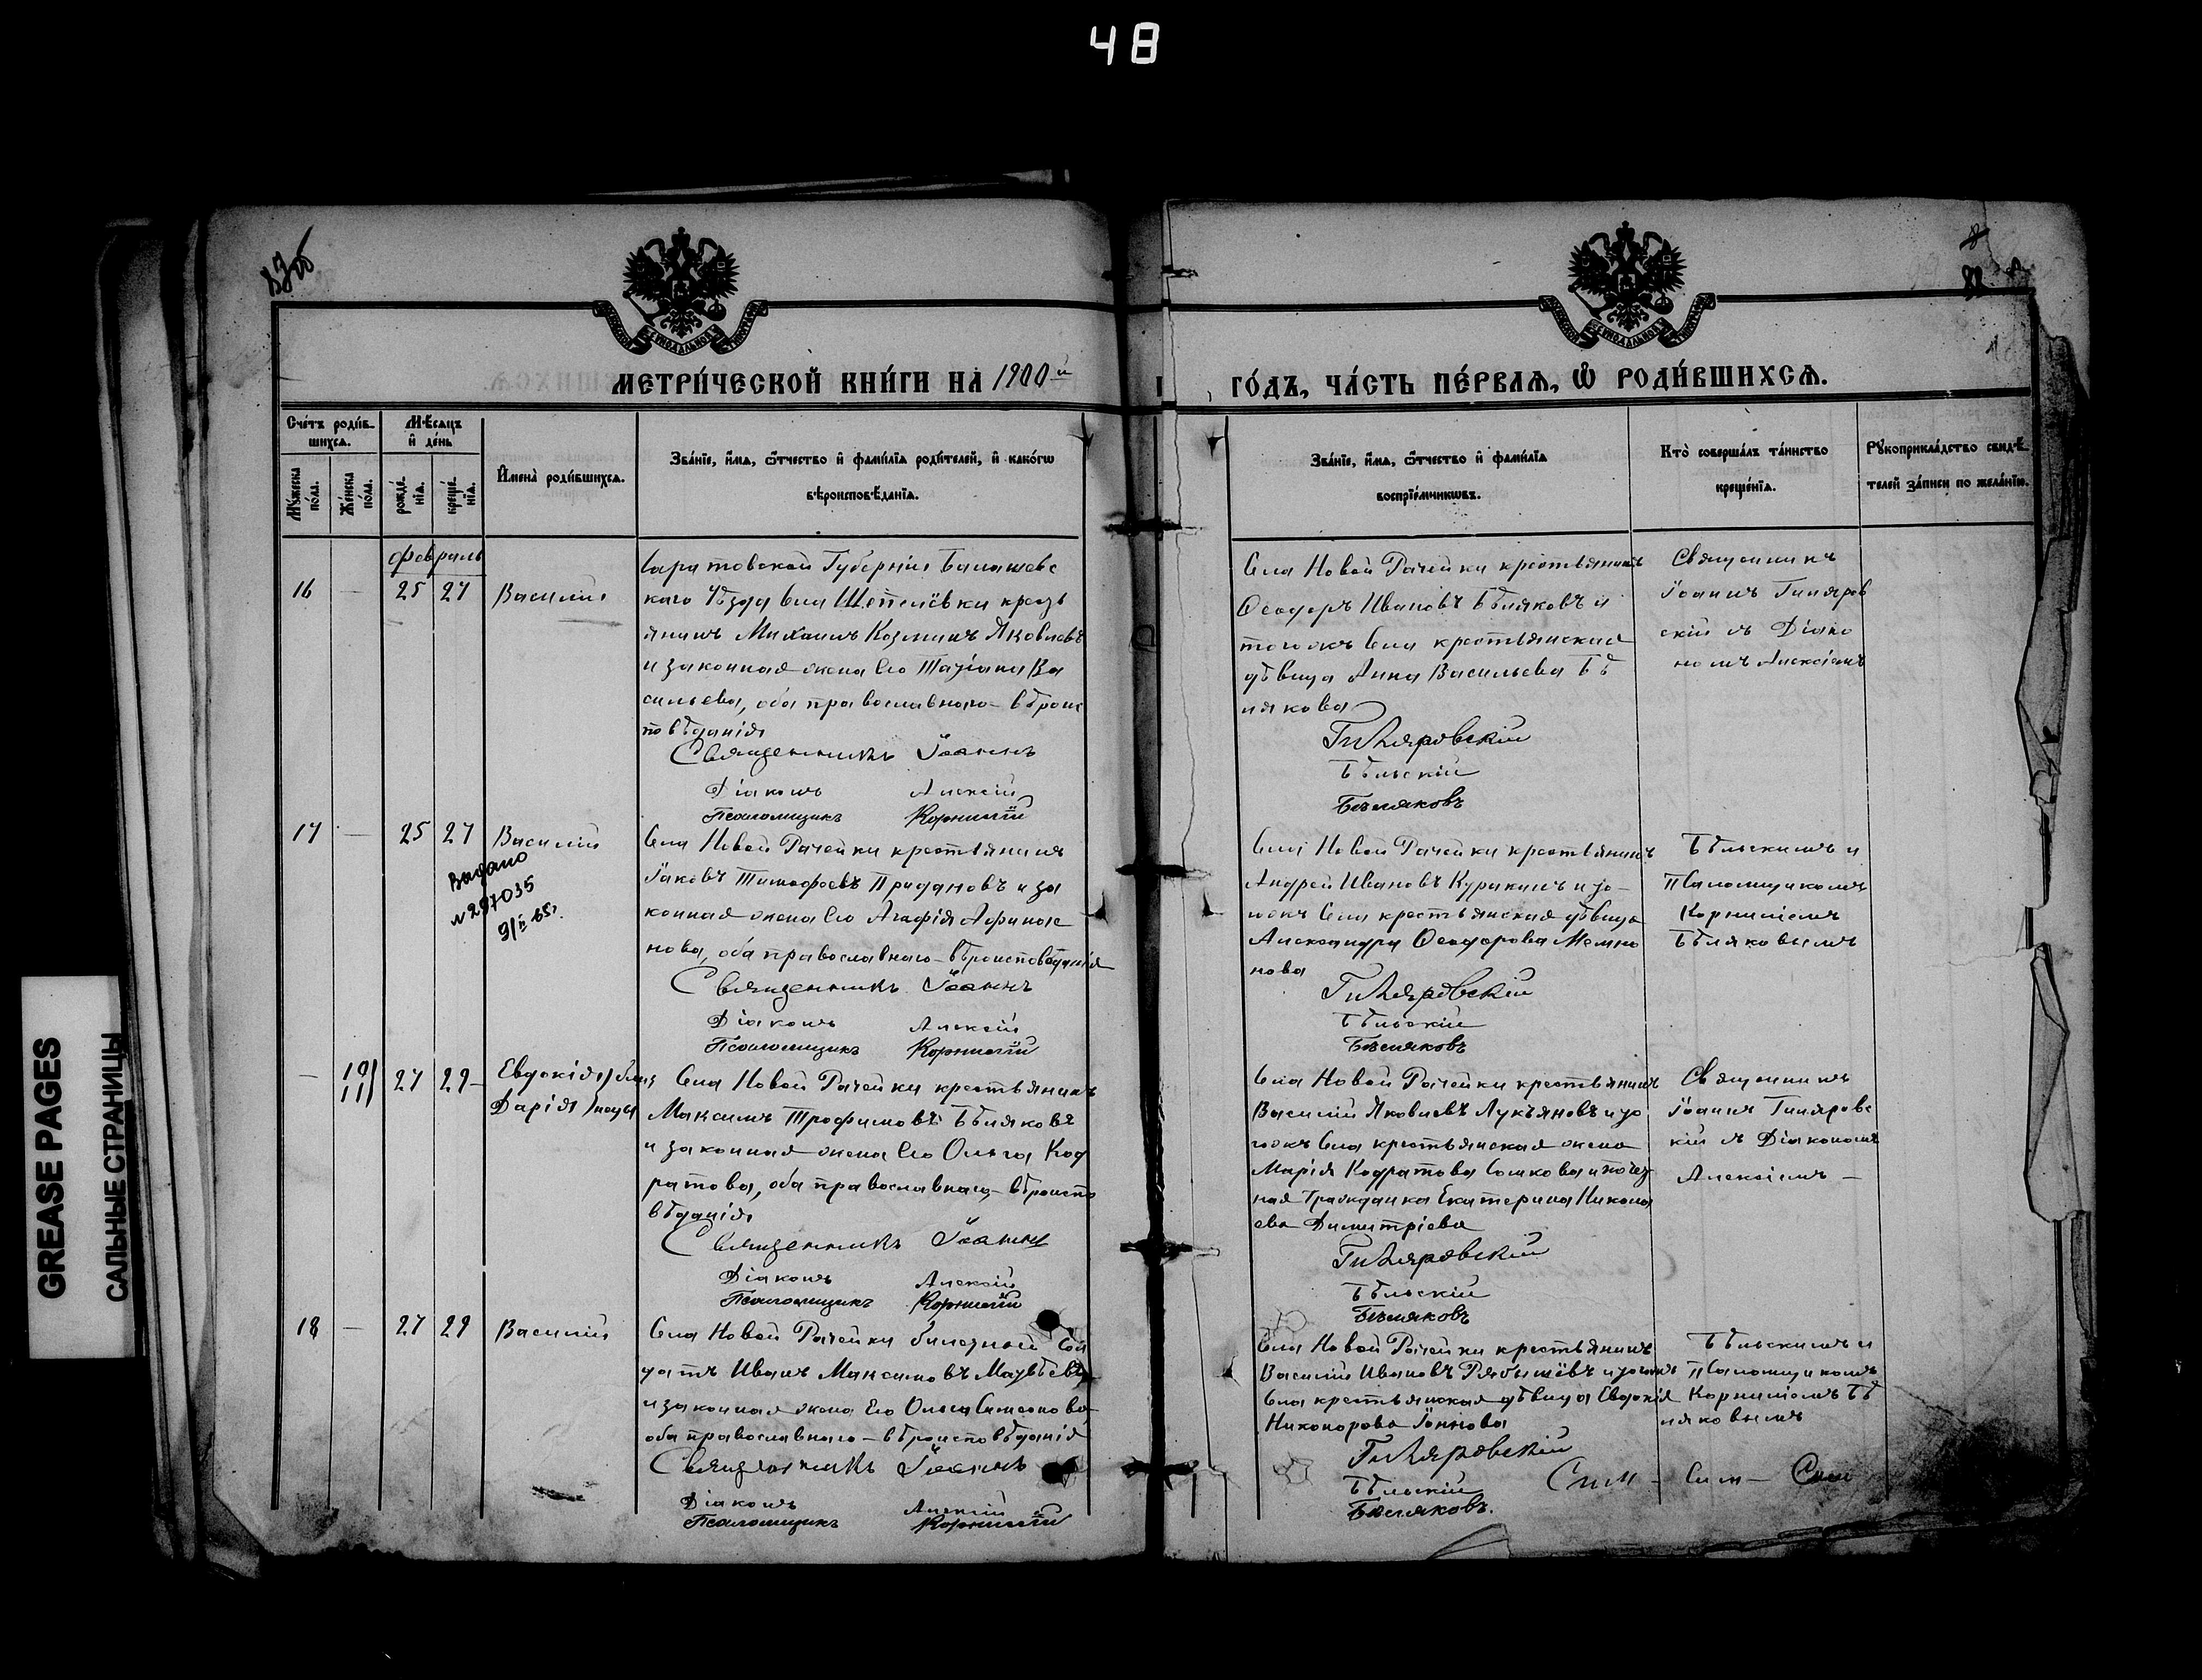 48
GREASE PAGES
САЛЬНЫЕ СТРАНИЦЫ
МЕТРИ́ЧЕСКОЙ КНИ́ГИ НА 1900й
ГО́ДЪ, ЧА́СТЬ ПЕ́РВАѦ, Ѽ РОДИ́ВШИХСѦ.
Сче́тъ роди́в-
шихсѧ.
Мѣ́сѧцъ
и҆ де́нь
Мꙋ́жеска
по́ла.
Же́нска
по́ла.
рожде́-
нїѧ.
креще́-
нїѧ.
И҆мена̀ роди́вшихсѧ.
Зва́нїе, и҆́мѧ, ѻ҆́тчество и҆ фами́лїѧ роди́телей, и҆ како́гѡ
вѣроисповѣ́данїѧ.
Зва́нїе, и҆́мѧ, ѻ҆́тчество и҆ фами́лїѧ
воспрїе́мникѡвъ.
Кто̀ соверша́лъ та́инство
креще́нїѧ.
Рꙋкоприкла́дство свидѣ́-
телей за́писи по жела́нїю.
февраль
16 — 25 27 Василій
Саратовской Губерніи Балашовс
каго Уѣзда села Шепелёвки кресть
янинъ Михаилъ Козминъ Яковлевъ
и законная жена его Татіана Ва
сильева, оба православнаго вѣроис
повѣданія
Священникъ Іоаннъ
Діаконъ Алексій
Псаломщикъ Корнилій
Села Новой Рачейки крестьянинъ
Ѳеодоръ Ивановъ Бѣляковъ и
тогожъ села крестьянская
дѣвица Анна Васильева Бѣ
лякова
Гиляровскій
Бѣльскій
Бѣляковъ
Священникъ
Іоаннъ Гиляров
скій съ Діако
номъ Алексіемъ
17 — 25 27 Василій
Выдано
N 297035
9/II-65г.
Села Новой Рачейки крестьянинъ
Іаковъ Тимофеевъ Придановъ и за
конная жена его Агафія Афиноге
нова, оба православнаго вѣроисповѣданія
Священникъ Іоаннъ
Діаконъ Алексій
Псаломщикъ Корнилій
Села Новой Рачейки крестьянинъ
Андрей Ивановъ Куракинъ и то-
гожъ села крестьянская дѣвица
Александра Ѳеодорова Мемно
нова
Гиляровскій
Бѣльскій
Бѣляковъ
Бѣльскимъ и
Псаломщикомъ
Корниліемъ
Бѣляковымъ
— 10 27 29 Евдокія
11 Дарія
Села Новой Рачейки крестьянинъ
Максимъ Трофимовъ Бѣляковъ
и законная жена его Ольга Код
ратова, оба православнаго вѣроиспо
вѣданія
Священникъ Іоаннъ
Діаконъ Алексій
Псаломщикъ Корнилій
Села Новой Рачейки крестьянинъ
Василій Яковлевъ Лукьяновъ и то
гожъ села крестьянская жена
Марія Кодратова Сошкова и почет
ная гражданка Екатерина Никола
ева Димитріева
Гиляровскій
Бѣльскій
Бѣляковъ
Священникъ
Іоаннъ Гиляровс
кій съ Діакономъ
Алексіемъ —
18 — 27 29 Василій
Села Новой Рачейки билетный Сол
датъ Иванъ Максимовъ
и законная жена Его Ольга Симеонова
оба православнаго вѣроисповѣданія
Священникъ Іоаннъ
Діаконъ Алексій
Псаломщикъ Корнилій
Села Новой Рачейки крестьянинъ
Василій Ивановъ Рябышёвъ и тогожъ
села крестьянская дѣвица Евдокія
Никонорова
Гиляровскій
Бѣльскій
Бѣляковъ.
Бѣльскимъ и
Псаломщикомъ
Корниліемъ Бѣ
ляковымъ